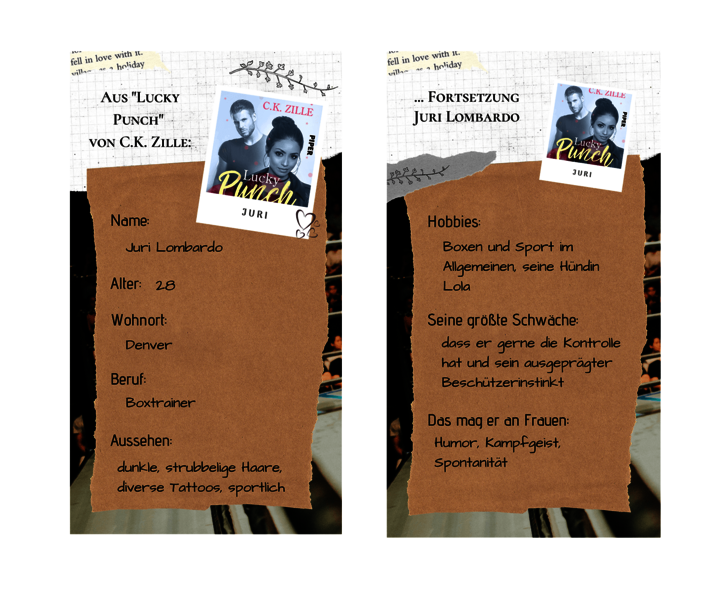 fell in love with it.
holiday
Aus "Lucky
Punch"
von C.K. Zille:
C.K. ZILLE
PIPER
Lucky
Punch
JURI
Name:
Juri Lombardo
Alter: 28
Wohnort:
Denver
Beruf:
Boxtrainer
Aussehen:
dunkle, strubbelige Haare,
diverse Tattoos, sportlich
fell in love with it.
a holiday
... Fortsetzung
Juri Lombardo
C.K. ZILLE
PIPER
Lucky
Punch
JURI
Hobbies:
Boxen und Sport im
Allgemeinen, seine Hündin
Lola
Seine größte Schwäche:
dass er gerne die Kontrolle
hat und sein ausgeprägter
Beschützerinstinkt
Das mag er an Frauen:
Humor, Kampfgeist,
Spontanität